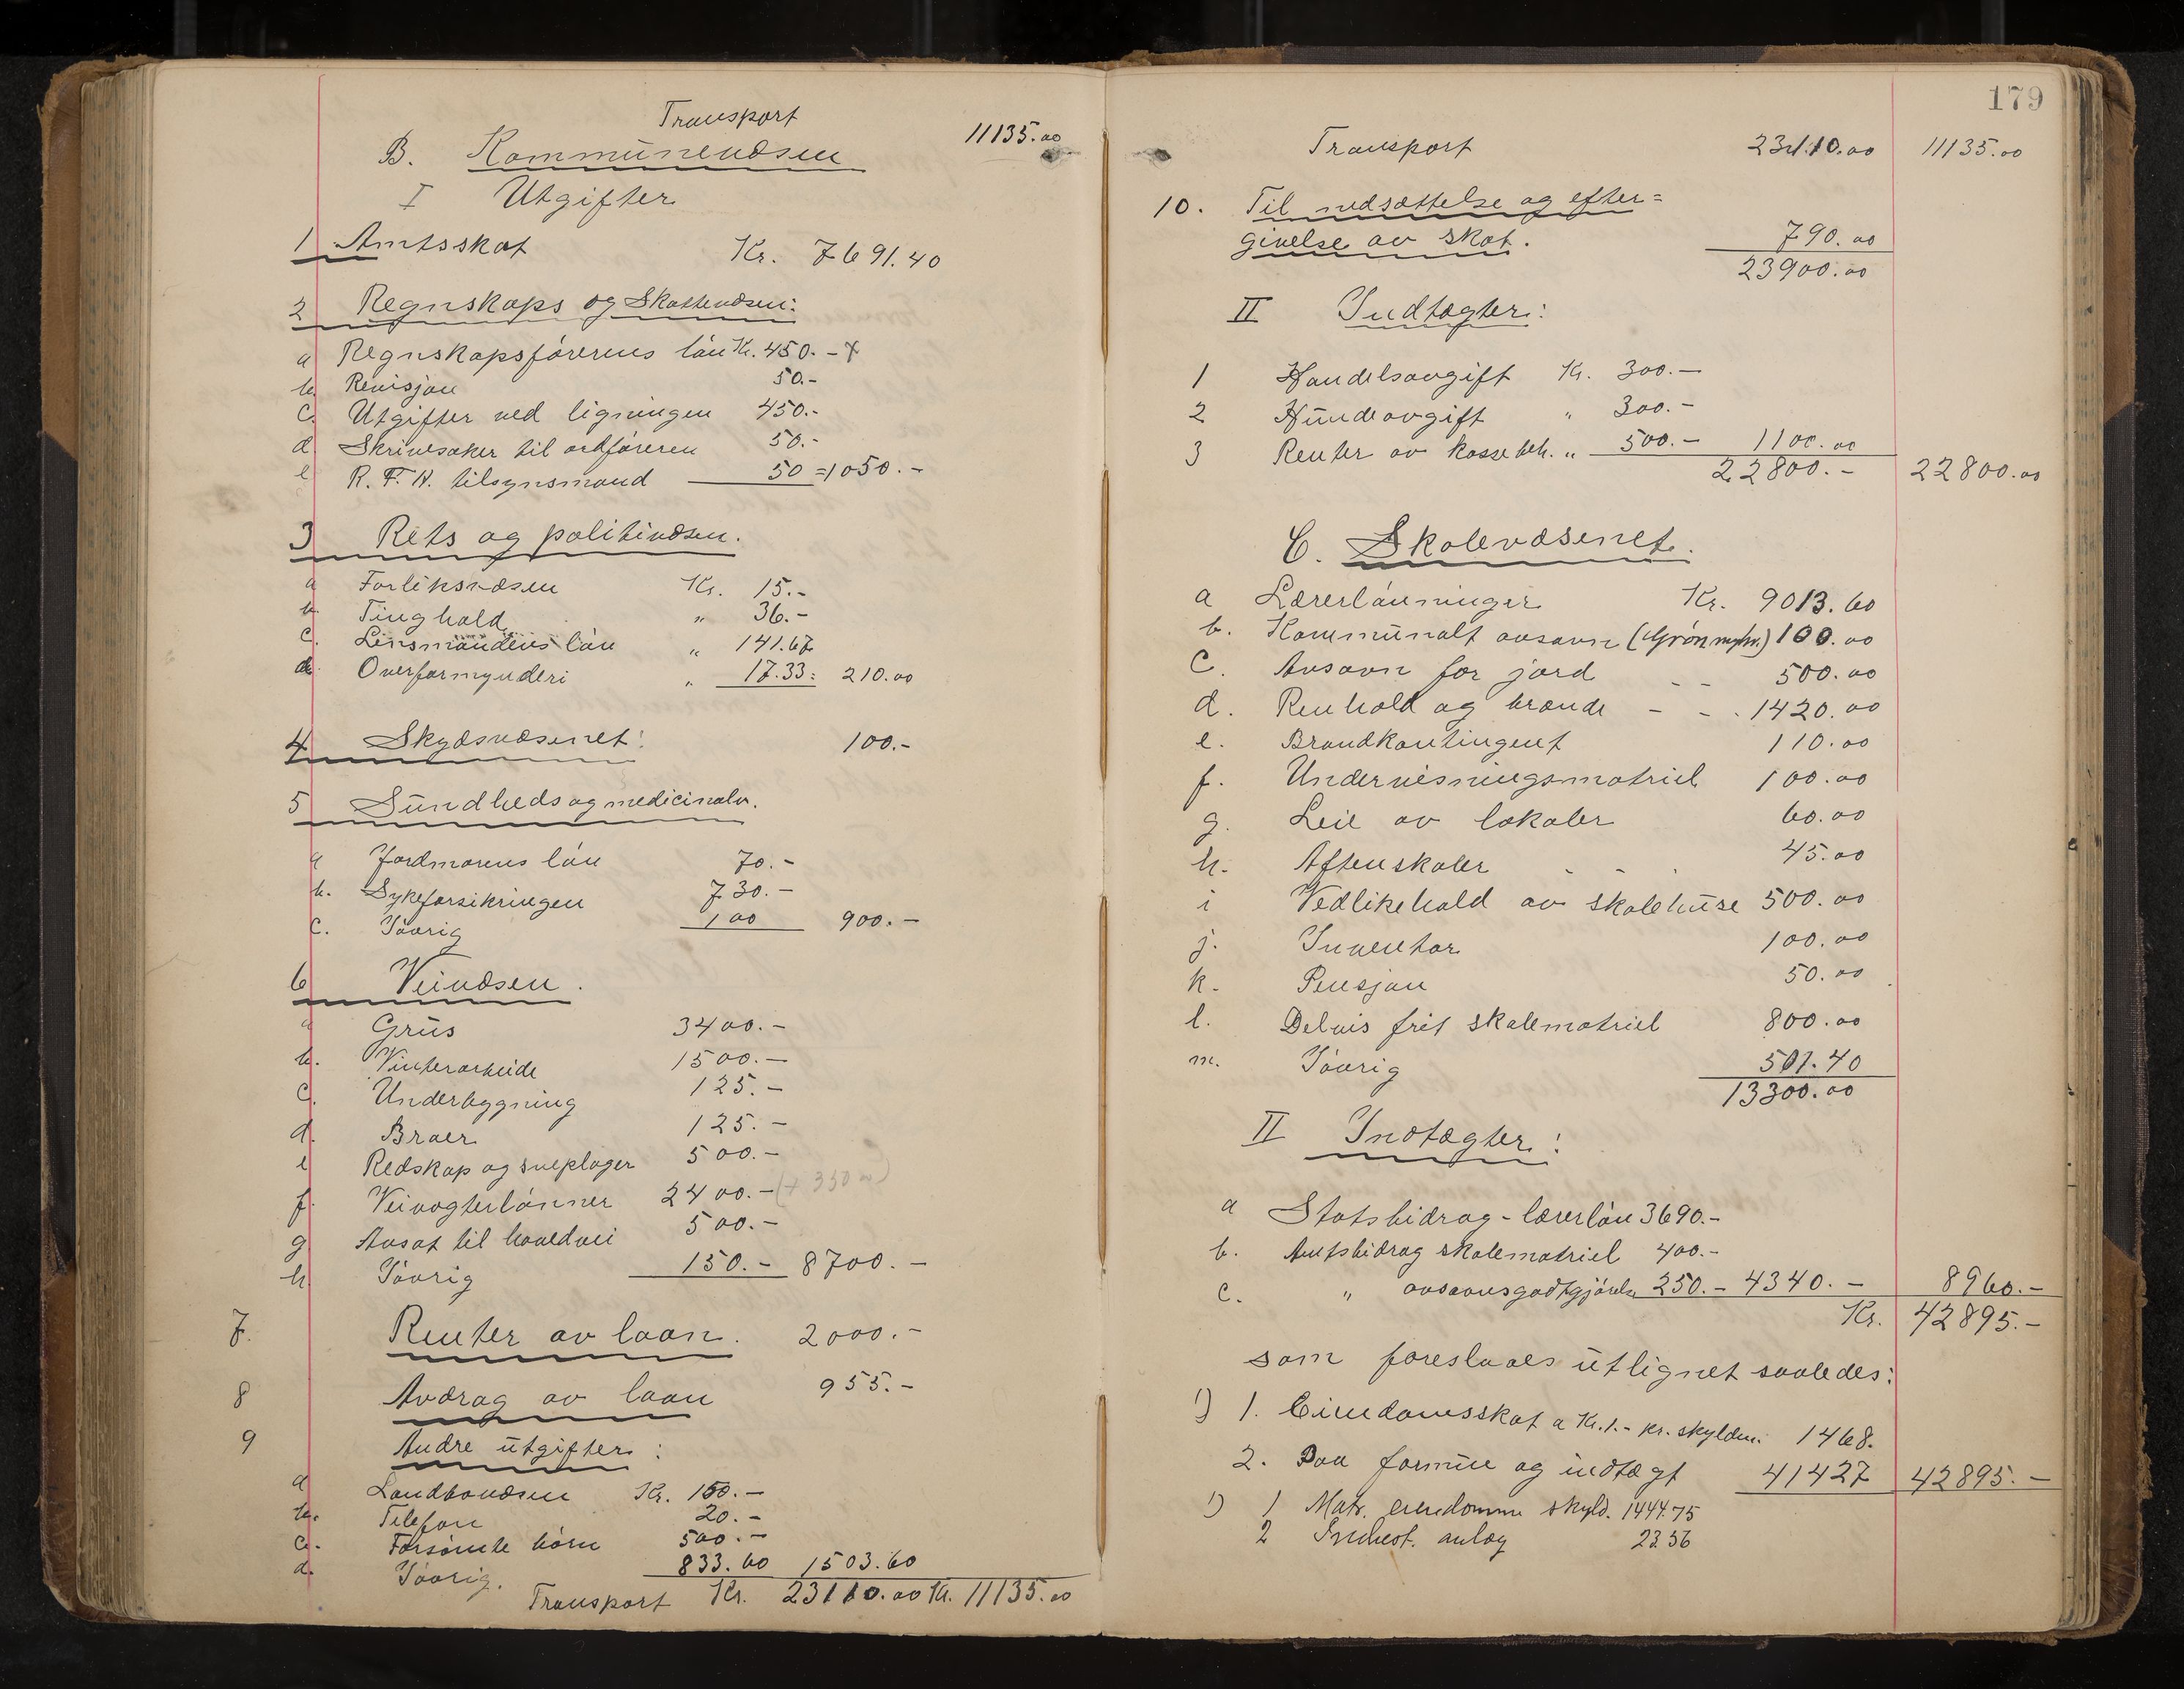 Transport
11135.00
B. Kommunevæsen
I Utgifter
1 Amtsskat Kr. 7691.40
2 Regnskaps og Skattevæsen:
a Regnskapsførerens løn Kr. 450.-
b. Revisjon 50.-
c. Utgifter ved ligningen 450.-
d Skrivesaker til ordføreren 50.-
e R. F. K. tilsynsmand 50 = 1050.-
3 Rets og politivæsen.
a Forliksvæsen Kr. 15.-
b. Tinghold " 36.-
c. Lensmandens løn " 141.67
d. Overformynderi " 17.33: 210.00
4 Skydsvæsenet: 100.-
5 Sundheds og medicinalv.
a Jordmorens løn 70.-
b. Sykeforsikringen 730.-
c. Iøvrig 100 900.-
6 Veivæsen.
a Grus 3400.-
b. Vinterarbeide 1500.-
c. Underbygning 125.-
d. Broer 125.-
e Redskap og sneploger 500.-
f. Veivogterlønner 2400.- (+ 350 00)
g Ansat til hovedvei 500.-
h Iøvrig 150.- 8700.-
7. Renter av laan. 2000.-
8 Avdrag av laan 955.-
9 Andre utgifter:
a Landbovæsen Kr. 150.-
b. Telefon 20.-
c. Forsømte børn 500.-
d. Iøvrig. 833.60 1503.60
Transport Kr. 23110.00 Kr. 11135.00
179
Transport 23110.00 11135.00
10. Til nedsættelse og efter=
givelse av skat. 790.00
23900.00
II Indtægter:
1 Handelsavgift Kr. 300.-
2 Hundeavgift " 300.-
3 Renter av kassebeh. " 500.- 1100.00
22800.- 22800.00
C. Skolevæsenet.
a Lærerlønninger Kr. 9013.60
b. Kommunalt avsavn (Grønmyhr.) 100.00
c. Avsavn for jord - - 500.00
d. Renhold og brænde - - 1420.00
e. Brandkontingent 110.00
f. Undervisningsmatriel 100.00
g. Leie av lokaler 60.00
h. Aftenskoler - - 45.00
i Vedlikehold av skolehuse 500.00
j. Inventar 100.00
k. Pensjon 50.00
l. Delvis frit skolematriel 800.00
m. Iøvrig 501.40
13300.00
II Indtægter:
a Statsbidrag - lærerløn 3690.-
b. Amtsbidrag skolematriel 400.-
c. " avsavnsgodtgjørelse 250.- 4340.- 8960.-
Kr. 42895.-
som foreslaaes utlignet saaledes:
1) 1. Eiendomsskat a Kr. 1.- pr. skyldm. 1468.
2. Paa formue og indtægt 41427 42895.-
1) 1 Matr. eiendomme skyld. 1444.75
2 Indust. anlæg 23.56